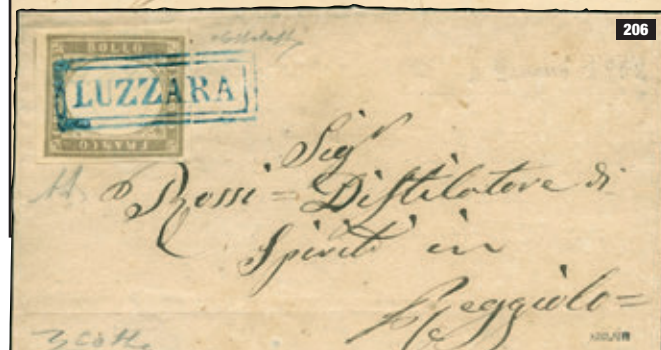 206
BOLLO
LUZZARA
FRANCO
Sigr
Rossi = Distilatore di
Spiriti in
Reggiolo =